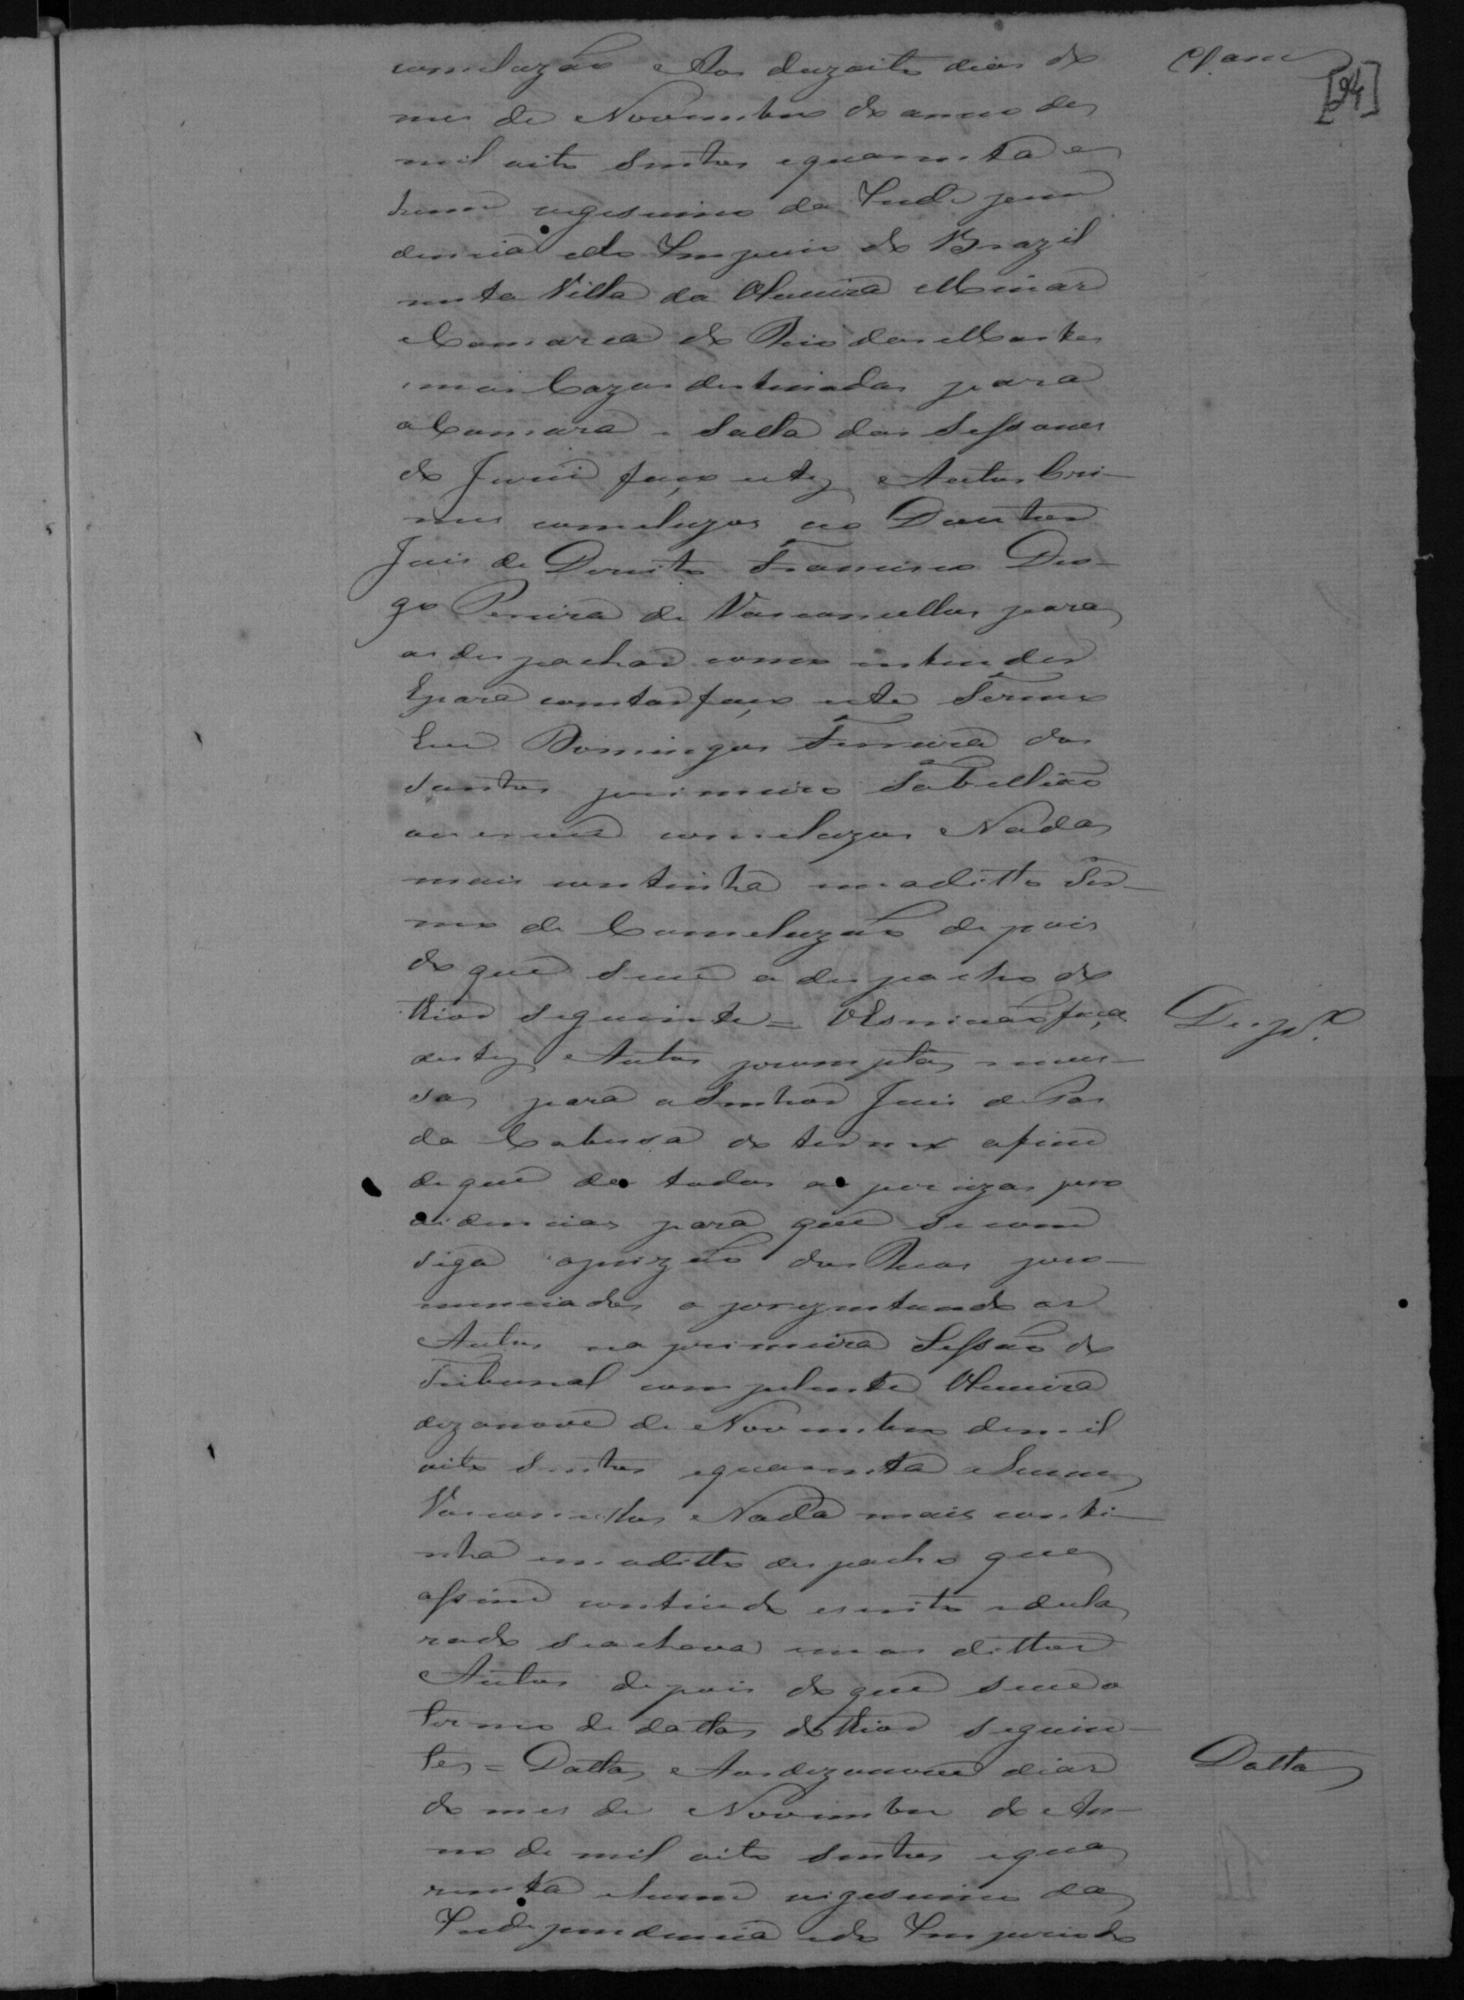 comcluzão Aos dezoito dias do
mes de Novembro do anno de
mil oito sentos equarenta e
hum vegesimo da Inde pen
dencia edo Imperio do Brazil
nesta Villa da Oliveira Minas
Comarca do Rio das Mortes
Cazas destinadas para
aCamara e Salla das Sessones
do Juri faço estes Autos Cri-
mes comcluzos ao Doutor
Juis de Dereito Francisco Dio-
go Pereira de Vasconcellos para
os des pachar como entender
Epara constar faço este Termo
Eu Domingos Ferreira dos
Santos primeiro Tabellião
que escrevi comcluzos Nada
mais continha em oditto Ter-
mo de Comcluzão depois
do que se via o des pacho do
thior seguinte = OEscrivão faça
destes Autos prompta remes-
sa para oSenhor Juis de Pas
da Cabessa do termo afim
de que de todas as percizas pro
videncias para que se com
siga aprizão dos Reos pro-
nunciados aprezentando os
Autos na primeira Sessão do
Tribunal competente Oliveira
dezanove de Novembro demil
oito sentos equarenta ehum
Vasconcellos Nada mais conti-
nha em oditto des pacho que
assim contiudo escrito edecla
rado seachava em os dittos
Autos depois do que se via o
termo de datta do thior seguin-
tes = Datta Aos dezanove dias
do mes de Novembro do An-
no de mil oito sentos equa
renta ehum vigesimo da
Independencia edo Imperio do
[24]
Desp.º
Datta